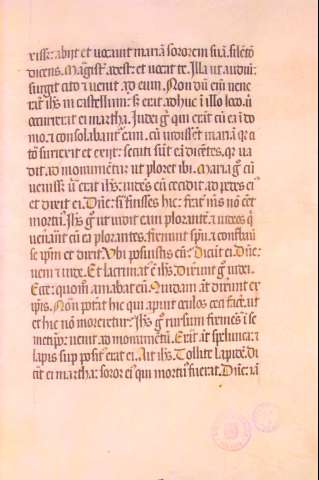 xiss; abiit et uocauit mariā sororem suā silētō
dicens. Magist̄ adest: et uocat te. Illa ut audiuit
surgit cito et uenit ad eum. Non dū eīm uene
rat ih̄s in castellum: s; erat adhuc ī illo loco. ū
occurrerat ei martha. Iudei g̊ qui erāt cū ea ī do
mo. et consolabant̄ eam. cū uidissēt mariā qr ci
tō surrexit et exiit: secuti sūt eā dicētes. qr ua
dit ad monumētū ut ploret ibi. Maria g̊ cū
uenisset ū erat ih̄s: uidēs eū cecidit ad pedes eiꝰ
et dixit ei. Dn̄e: si fuisses hic: frat̄ m̄s nō eēt
mortuꝰ. Ih̄s g̊ ut uidit eam plorantē: et iudeos q̄
uenāut cū ea plorantes. fremuit sp̄u: et cōturbau
se ip̄m et dixit. Vbi posuistis eū: Dicūt ei. Dn̄e:
ueni et uide. Et lacrimatꝰ ē ih̄s. Dixerūt g̊ iudei.
Ecce: quom̊ amabat eū. Quidam āt dixerūt ex
ip̄is. Non potāt hic qui apuit oculos ceci facē. ut
et hic nō moreretur. Ih̄s g̊ rursum fremēs ī se
metip̄o: uenit ad monumētū. Erāt āt spelunca: et
lapis suppositꝰ erat ei. Ait ih̄s. Tollite lapidē. Di
cit ei martha: soror eiꝰ qui mortuꝰ fuerat. Dn̄e: iā